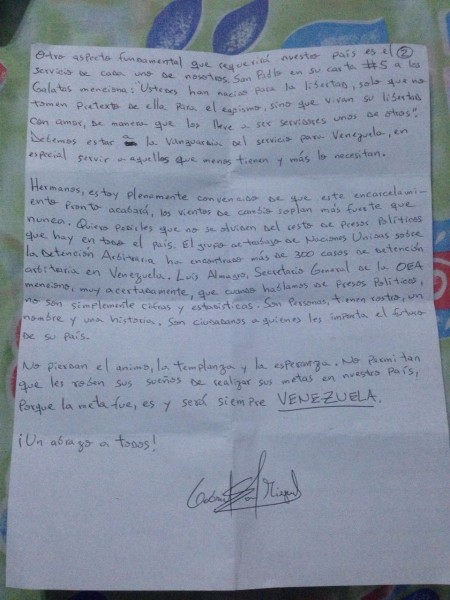 Otro aspecto fundamental que requerirá nuestro país es el ②
servicio de cada uno de nosotros. San Pablo en su carta #5 a los
Galatas menciona: "Ustedes han nacido para la libertad, solo que no
tomen pretexto de ella para el egoismo, sino que vivan su libertad
con amor, de manera que los lleve a ser servidores unos de otros".
Debemos estar a la vanguardia del servicio para Venezuela, en
especial servir a aquellos que menos tienen y más lo necesitan.
Hermanos, estoy plenamente convencido de que este encarcelami-
ento pronto acabará, los vientos de cambio soplan más fuerte que
nunca. Quiero pedirles que no se olviden del resto de Presos Políticos
que hay en todo el país. El grupo de trabajo de Naciones Unidas sobre
la Detención Arbitraria ha encontrado más de 300 casos de detención
arbitraria en Venezuela. Luis Almagro, Secretario General de la OEA
menciono, muy acertadamente, que cuando hablamos de Presos Políticos,
no son simplemente cifras y estadísticas. Son Personas, tienen rostro, un
nombre y una historia. Son ciudadanos a quienes les importa el futuro
de su país.
No pierdan el animo, la templanza y la esperanza. No permitan
que les roben sus sueños de realizar sus metas en nuestro país,
Porque la meta fue, es y será siempre VENEZUELA.
¡Un abrazo a todos!